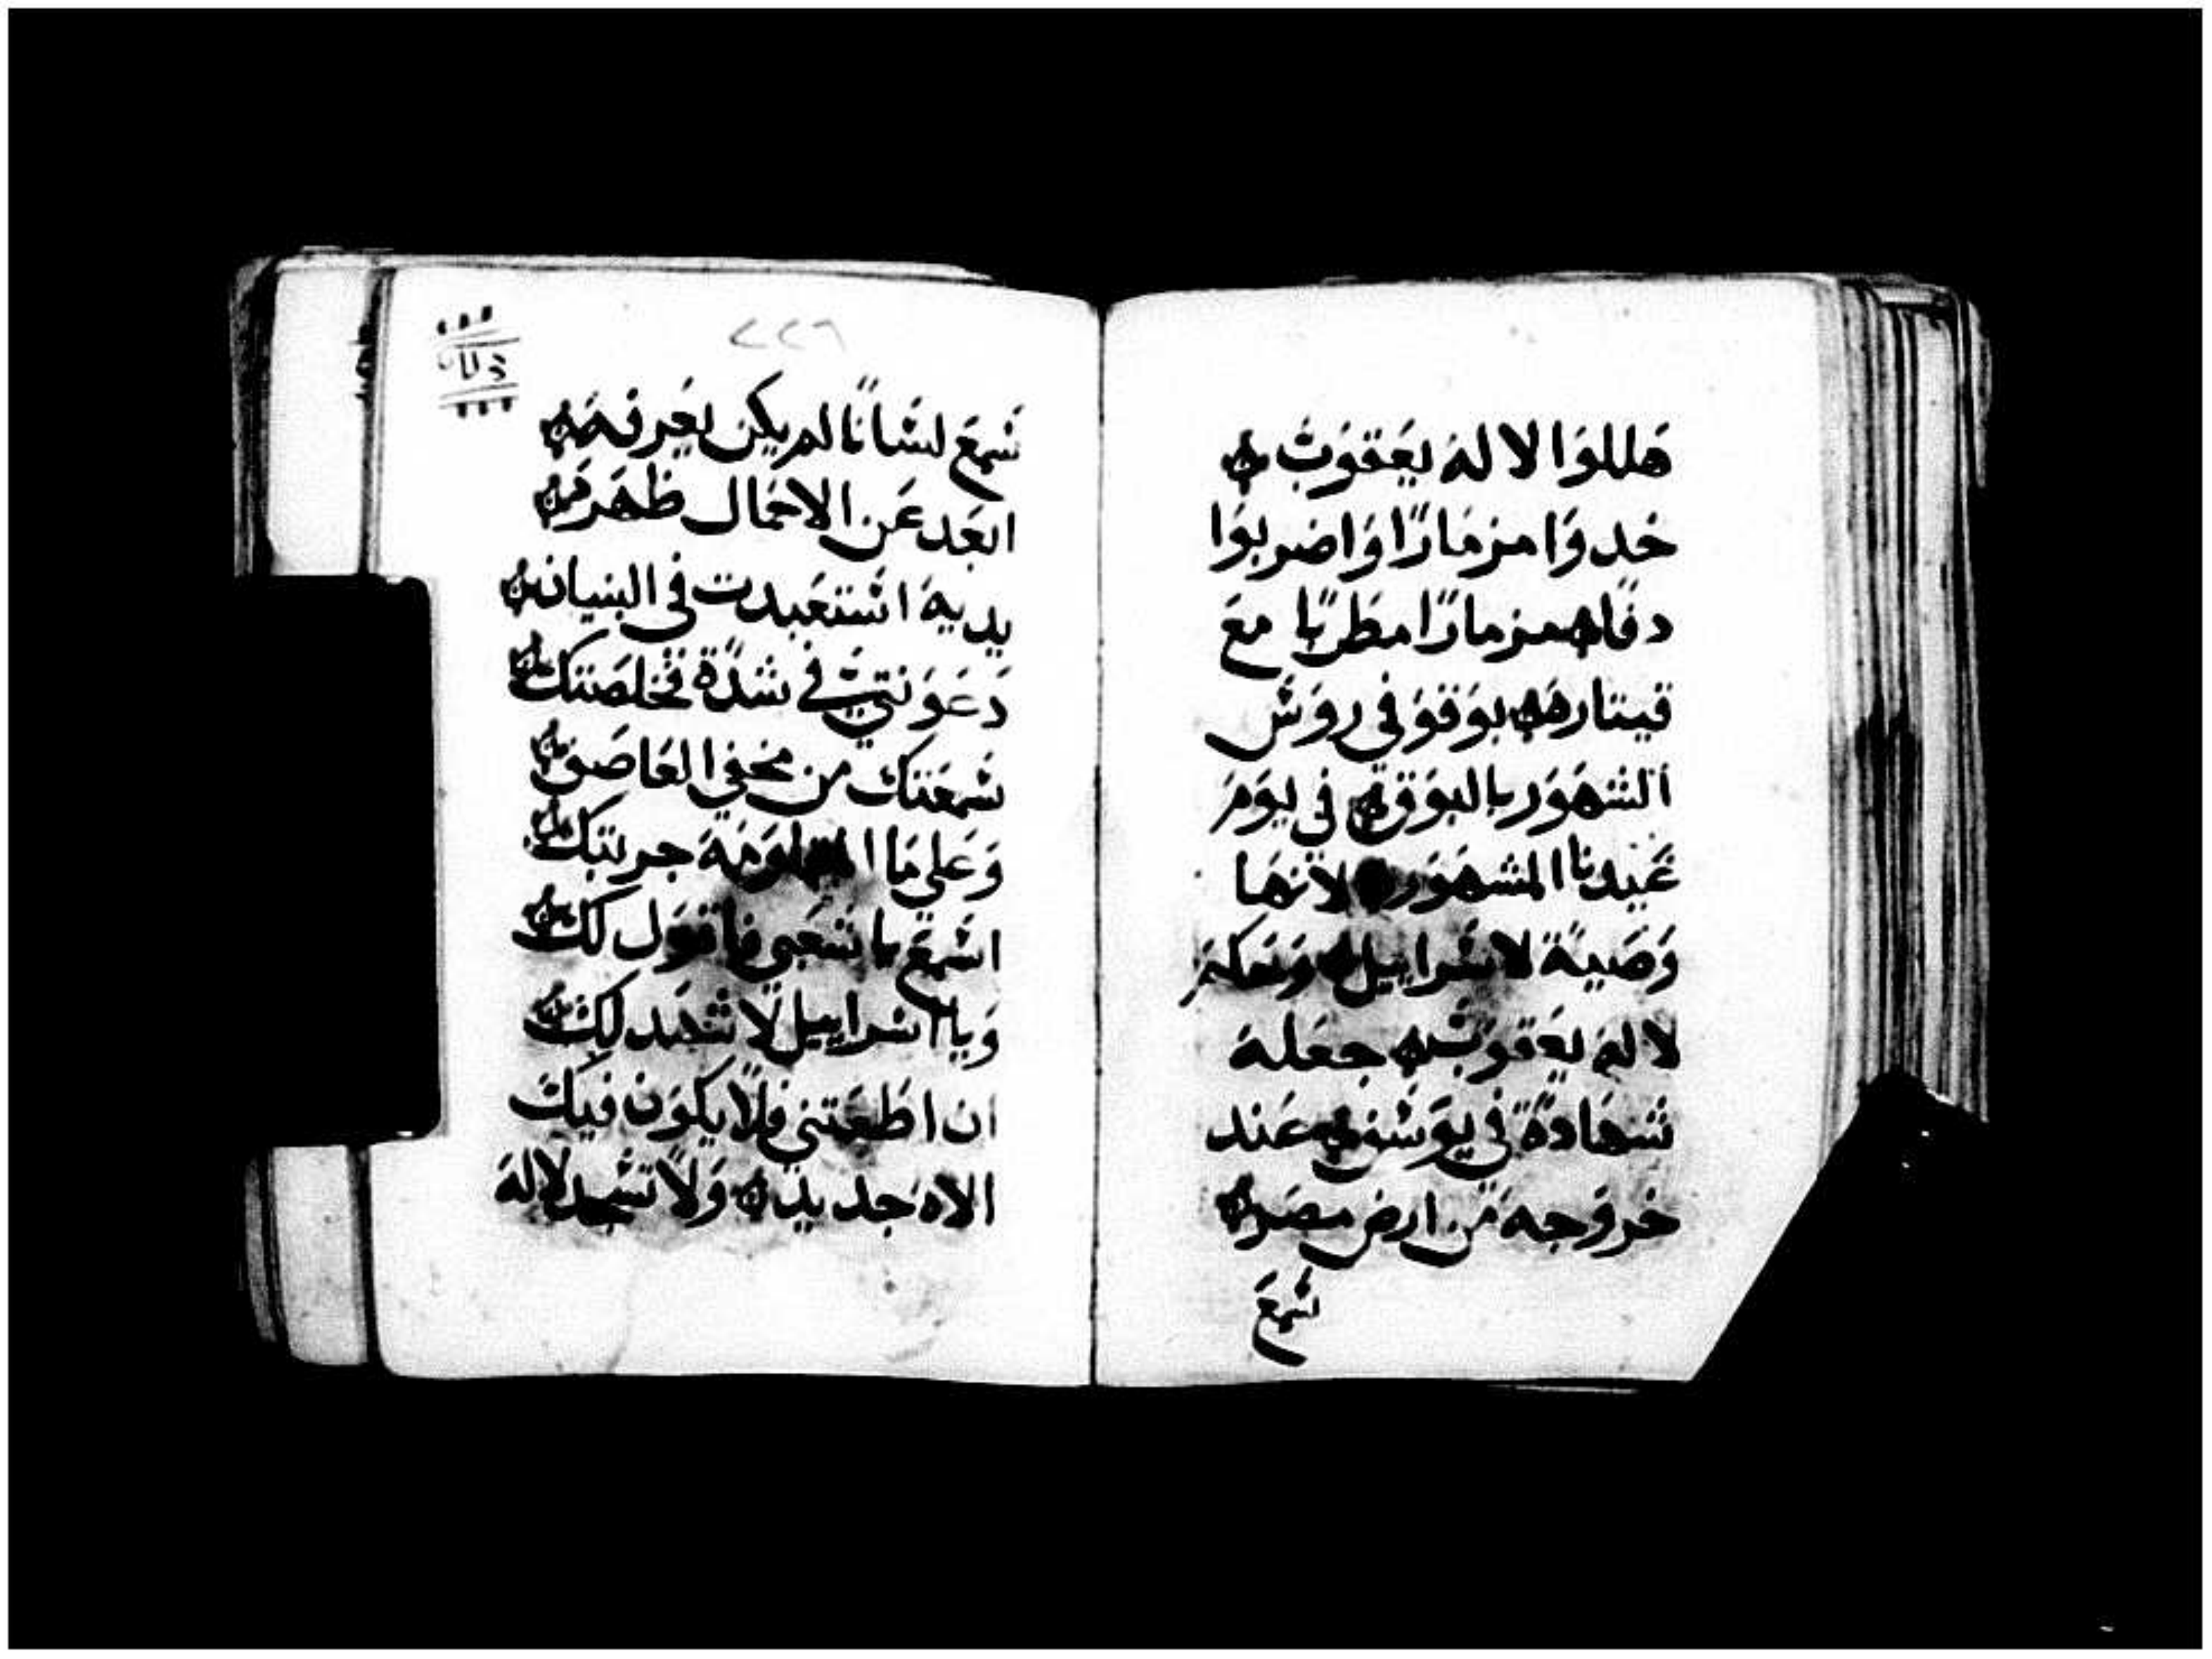 هَللوَا لالهَ يَعَقوَبَ
خَدوَا مزمَارًا وَاضربوَا
دفًا مزمارًا مطَربًا معَ
قيتاره بوَقوَ في روَسَ
الشهوَر بالبوَق في يوَمَ
عَيدنا المشهوَر لانهَا
وَصَيهَ لاسَراييل وَحَكمَ
لالهَ يعَقوَبَ جعَلهَ
شهَادهَ في يوَسَف عَند
خروَجهَ من ارض مصَر
سَمعَ
٢٢٦
سَمعَ لسَانًا لم يكن يعَرفهَ
ابعَد عَن الاحمَال ظهَرهَ
يديهَ استعَبدت في البنيان
دَعَوَتني في شدَة فخلصَتك
سَمعَتك من مخفي العَاصَف
وَعَلي مَا الخصَوَمهَ جربتك
اسَمعَ يا شعَبي فاقوَل لك
وَيا اسَراييل لاشهَد لك
ان اطَعَتني فلا يكوَن فيك
الاهَ جديد وَلا تسَجد لالهَ